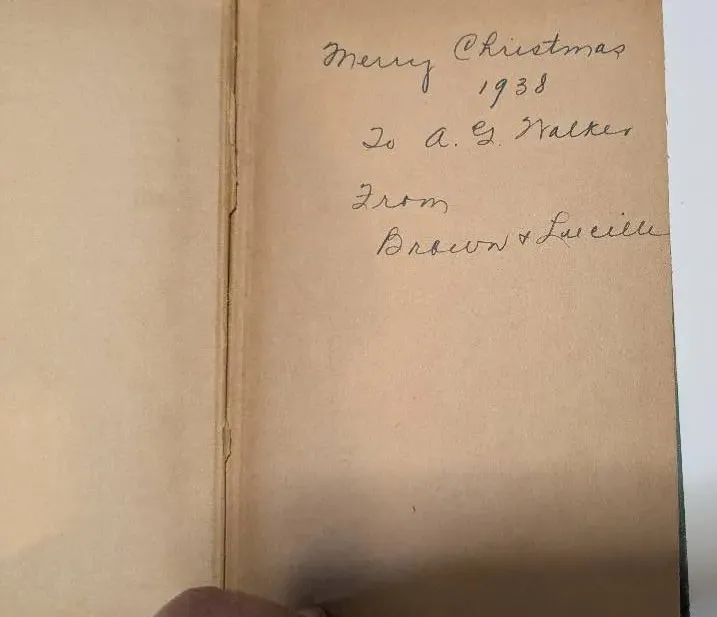 Merry Christmas
1938
To A. G. Walker
From
Brown & Lucille